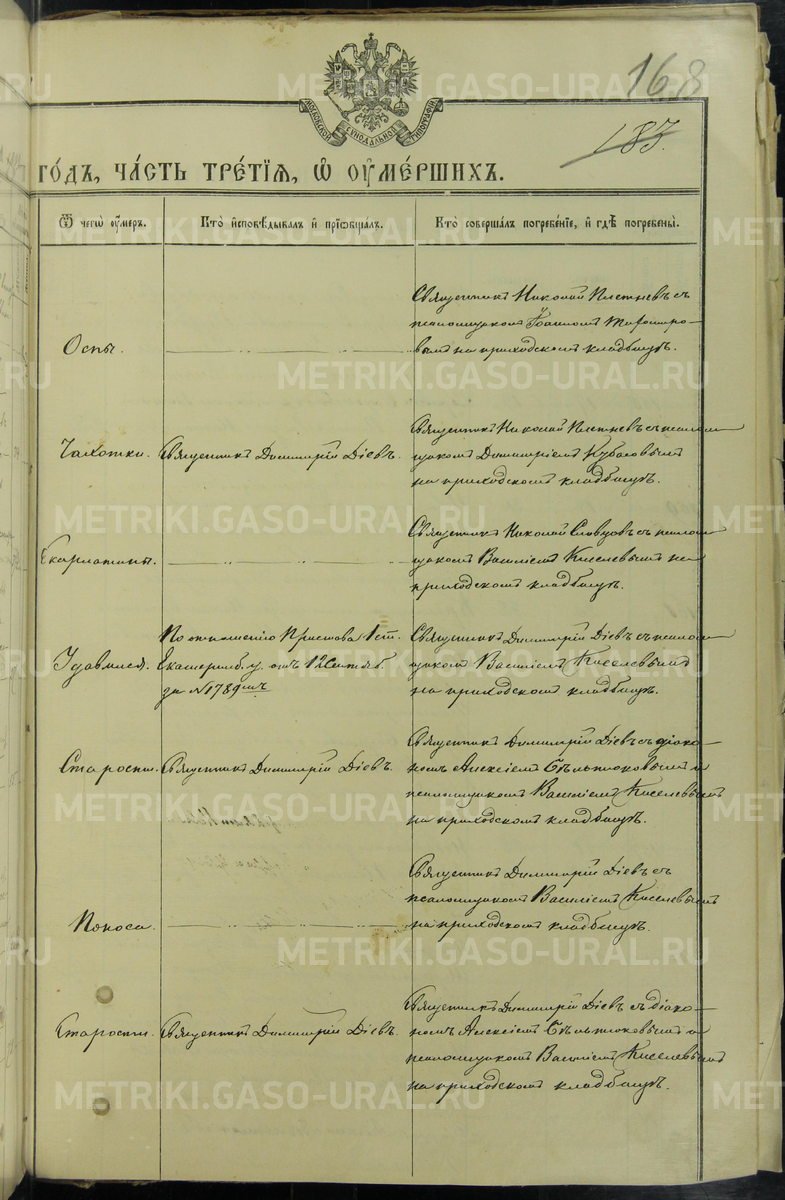 168
183.
МОСКОВСКОЙ СѴНОДАЛЬНОЙ ТИПОГРАФІИ
го́дъ, ча́сть тре́тїѧ, ѡ҆ ᲂу҆ме́ршихъ.
Ѿ чегѡ̀ ᲂу҆́меръ.
Кто̀ и҆сповѣ́дывалъ и҆ прїѡбща́лъ.
Кто̀ соверша́лъ погребе́нїе, и҆ гдѣ̀ погребены̀.
Оспы.
Священникъ Николай Плетневъ съ
псаломщикомъ Іоанномъ
вымъ на приходскомъ кладбищѣ.
Чахотки.
Священникъ Димитрій Діевъ.
Священникъ Николай Плетневъ съ псалом-
щикомъ Димитріемъ Кубасовымъ
на приходскомъ кладбищѣ.
Скарлатины.
Священникъ Николай Словцовъ съ псалом-
щикомъ Василіемъ Киселевымъ на
приходскомъ кладбищѣ.
Удавился.
По отношенію Пристава 1 ст.
Екатеринб. у. отъ 12 Сентяб.
за №1789мъ
Священникъ Димитрій Діевъ съ псалом-
щикомъ Василіемъ Киселевымъ
на приходскомъ кладбищѣ.
Старости.
Священникъ Димитрій Діевъ.
Священникъ Димитрій Діевъ съ діако-
номъ Алексіемъ и
псаломщикомъ Василіемъ Киселевымъ
на приходскомъ кладбищѣ.
Поноса.
Священникъ Димитрій Діевъ съ
псаломщикомъ Василіемъ Киселевымъ
на приходскомъ кладбищѣ.
Старости.
Священникъ Димитрій Діевъ.
Священникъ Димитрій Діевъ съ діако-
номъ Алексіемъ и
псаломщикомъ Василіемъ Киселевымъ
на приходскомъ кладбищѣ.
METRIKI.GASO-URAL.RU